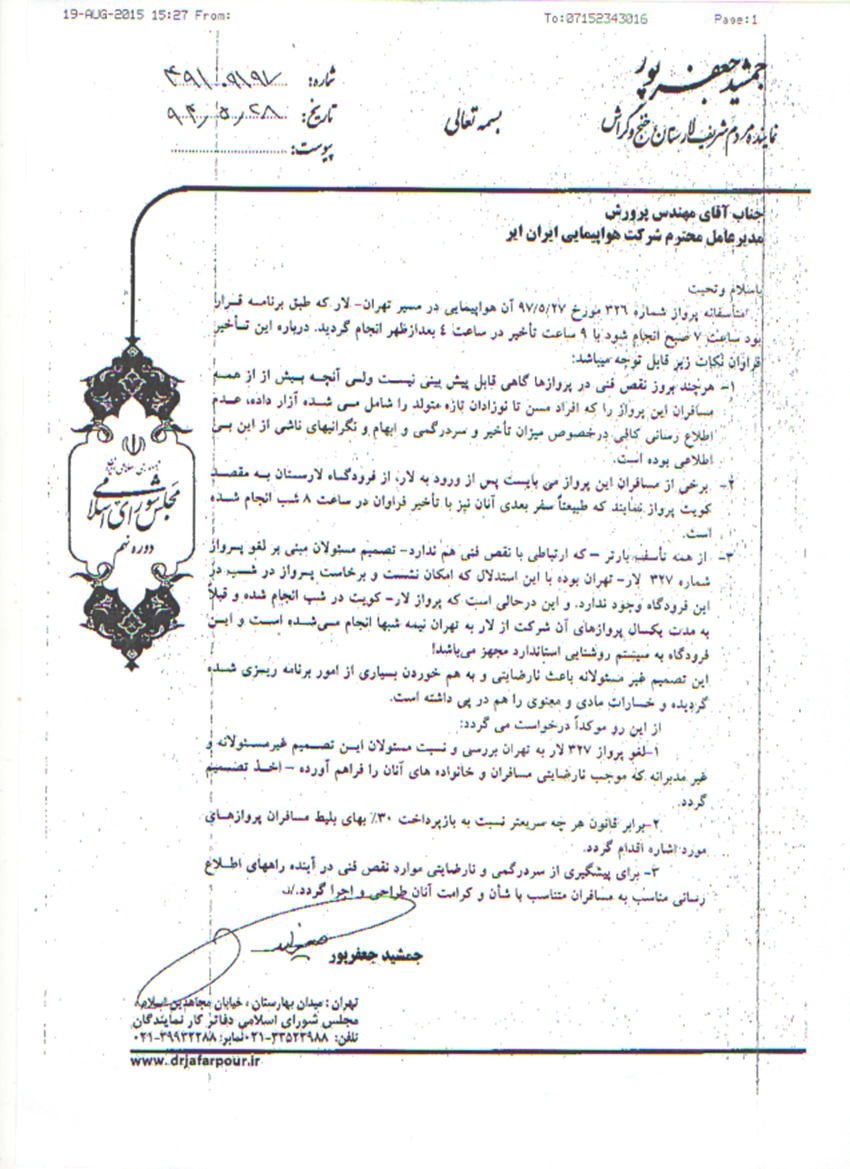 19-AUG-2015 15:27 From:
To:07152343016
Page:1
جمشید جعفرپور
نماینده مردم شریف لارستان، خنج و گراش
بسمه تعالی
شماره: ۴۹۱۰۹۱۹۷
تاریخ: ۹۴/۵/۲۸
پیوست:
جناب آقای مهندس پرورش
مدیرعامل محترم شرکت هواپیمایی ایران ایر
باسلام وتحیت
متأسفانه پرواز شماره ۳۲۶ مورخ ۹۷/۵/۲۷ آن هواپیمایی در مسیر تهران- لار که طبق برنامه قرار
بود ساعت ۷ صبح انجام شود با ۹ ساعت تأخیر در ساعت ٤ بعدازظهر انجام گردید. درباره این تأخیر
فراوان نکات زیر قابل توجه میباشد:
۱- هرچند بروز نقص فنی در پروازها گاهی قابل پیش بینی نیست ولی آنچه بیش از از همه
مسافران این پرواز را که افراد مسن تا نوزادان تازه متولد را شامل می شده آزار داده، عدم
اطلاع رسانی کافی درخصوص میزان تأخیر و سردرگمی و ابهام و نگرانیهای ناشی از این بی
اطلاعی بوده است.
۲- برخی از مسافران این پرواز می بایست پس از ورود به لار، از فرودگاه لارستان به مقصد
کویت پرواز نمایند که طبیعتاً سفر بعدی آنان نیز با تأخیر فراوان در ساعت ۸ شب انجام شده
است.
۳- از همه تأسف بارتر - که ارتباطی با نقص فنی هم ندارد- تصمیم مسئولان مبنی بر لغو پرواز
شماره ۳۲۷ لار- تهران بوده با این استدلال که امکان نشست و برخاست پرواز در شب در
این فرودگاه وجود ندارد. و این درحالی است که پرواز لار- کویت در شب انجام شده و قبلاً
به مدت یکسال پروازهای آن شرکت از لار به تهران نیمه شبها انجام می‌شده است و این
فرودگاه به سیستم روشنایی استاندارد مجهز می‌باشد!
این تصمیم غیر مسئولانه باعث نارضایتی و به هم خوردن بسیاری از امور برنامه ریزی شده
گردیده و خسارات مادی و معنوی را هم در پی داشته است.
از این رو موکداً درخواست می گردد:
۱-لغو پرواز ۳۲۷ لار به تهران بررسی و نسبت مسئولان این تصمیم غیرمسئولانه و
غیر مدبرانه که موجب نارضایتی مسافران و خانواده های آنان را فراهم آورده - اخذ تصمیم
گردد.
۲-برابر قانون هر چه سریعتر نسبت به بازپرداخت ۳۰٪ بهای بلیط مسافران پروازهای
مورد اشاره اقدام گردد.
۳- برای پیشگیری از سردرگمی و نارضایتی موارد نقص فنی در آینده راههای اطلاع
رسانی مناسب به مسافران متناسب با شأن و کرامت آنان طراحی و اجرا گردد./ن
جمشید جعفرپور
جمهوری اسلامی ایران
مجلس شورای اسلامی
دوره نهم
تهران : میدان بهارستان ، خیابان مجاهدین اسلام،
مجلس شورای اسلامی دفاتر کار نمایندگان
تلفن: ۳۳۵۲۳۹۸۸-۰۲۱نمابر: ۳۹۹۳۲۲۸۸-۰۲۱
www.drjafarpour.ir